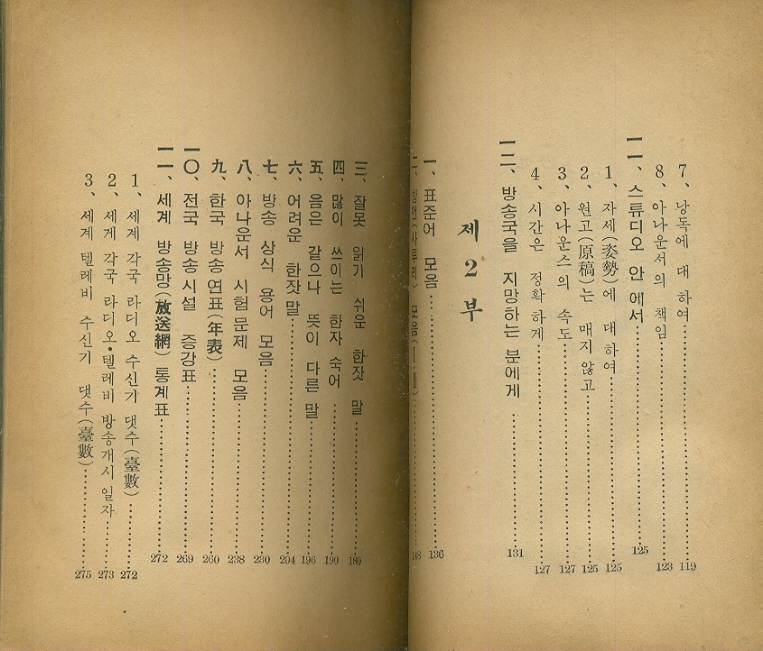 7、낭독에 대 하여 119
8、아나운서의 책임 123
一一、스튜디오 안 에서 125
1、자세(姿勢)에 대 하여 125
2、원고(原稿)는 매지않고 125
3、아나운스의 속도 127
4、시간은 정확 하게 127
一二、방송국을 지망하는 분에게 131
제 2 부
一、표준어 모음 136
三、잘못 읽기 쉬운 한잣 말 180
四、많이 쓰이는 한자 숙어 190
五、음은 같으나 뜻이 다른 말 196
六、어려운 한잣말 204
七、방송 상식 용어 모음 230
八、아나운서 시험문제 모음 238
九、한국 방송 연표(年表) 260
一〇、전국 방송 시설 증강표 269
一一、세계 방송망(放送網) 통계표 272
1、세계 각국 라디오 수신기 댓수(臺數) 272
2、세계 각국 라디오•텔레비 방송개시 일자 273
3、세계 텔레비 수신기 댓수(臺數) 275